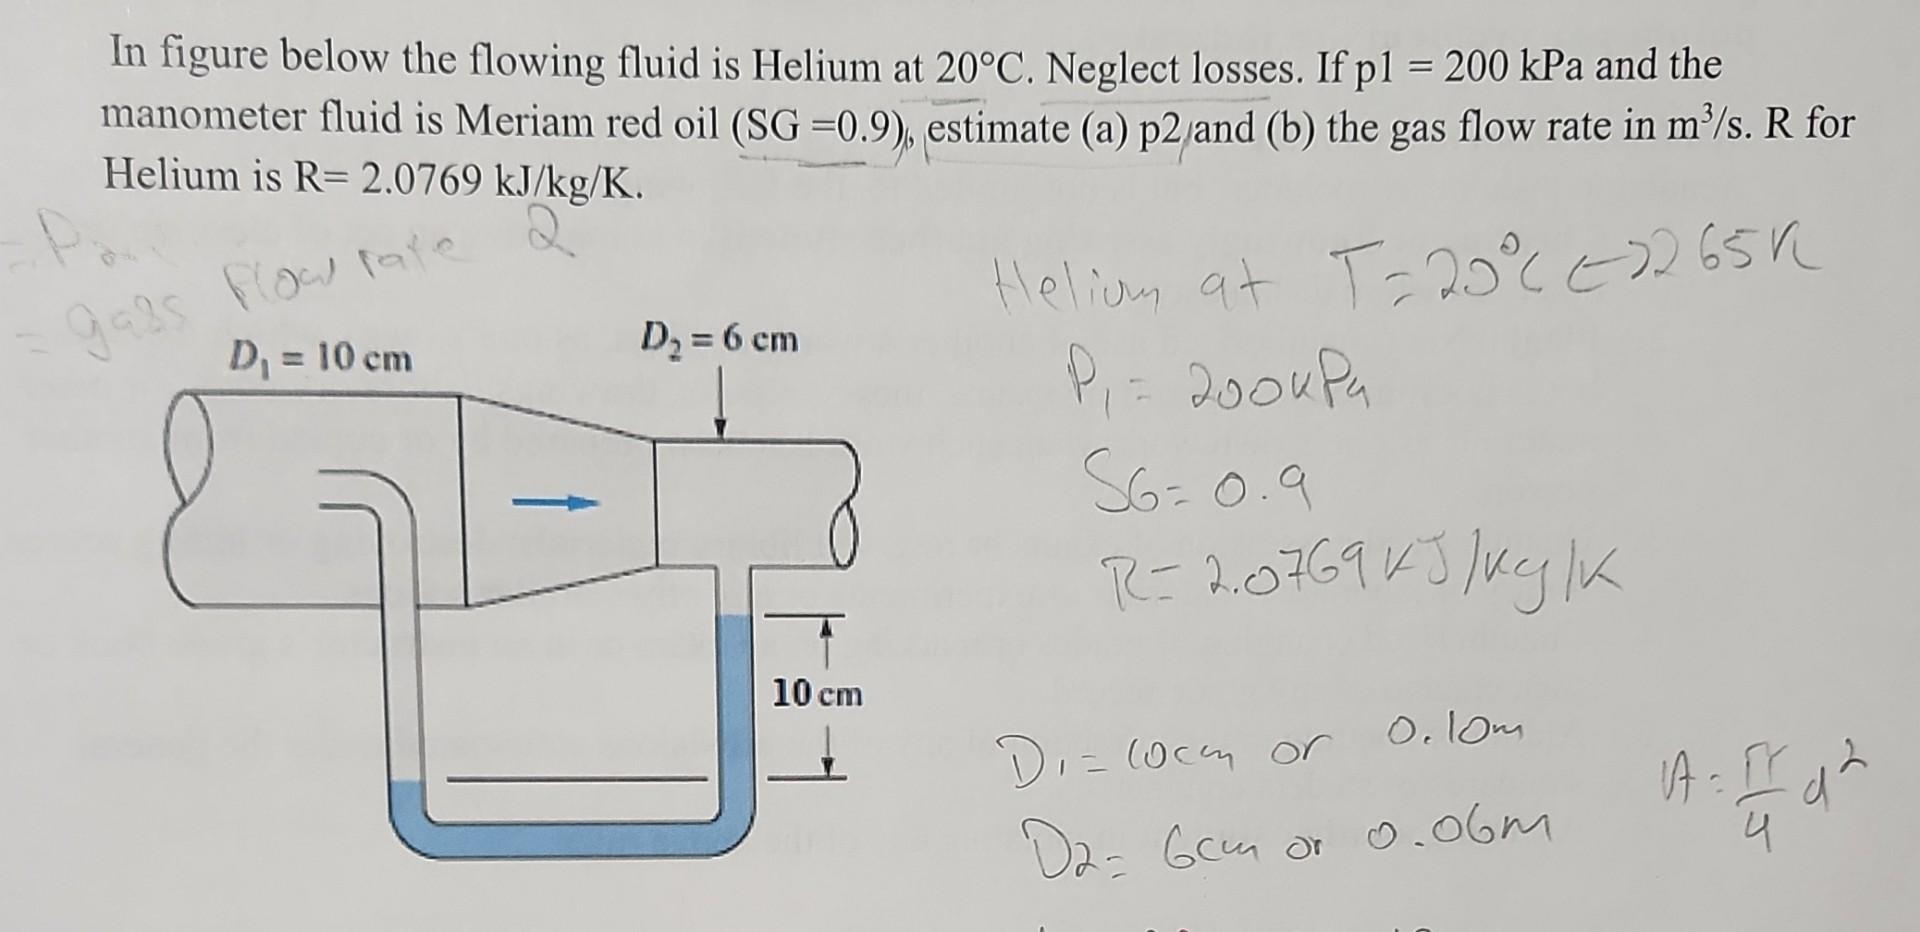 In figure below the flowing fluid is Helium at 20°C. Neglect losses. If p1 = 200 kPa and the
manometer fluid is Meriam red oil (SG =0.9), estimate (a) p2 and (b) the gas flow rate in m³/s. R for
Helium is R= 2.0769 kJ/kg/K.
= gass flow rate Q
Helium at T=20°C ↔ 265K
D₁ = 10 cm
D₂ = 6 cm
P₁ = 200kPa
SG= 0.9
R= 2.0769 KJ/kg/K
10 cm
D₁= 10cm or 0.10m
A= π/4 d²
D2= 6cm or 0.06m